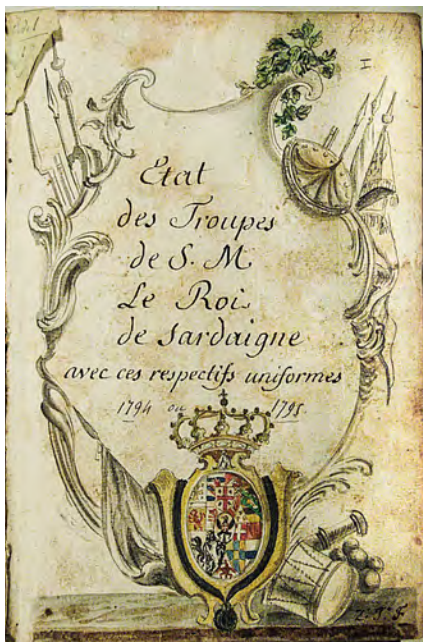 I
Etat
des Troupes
de S. M.
Le Roi
de Sardaigne
avec ces respectifs uniformes
1794 ou 1795.